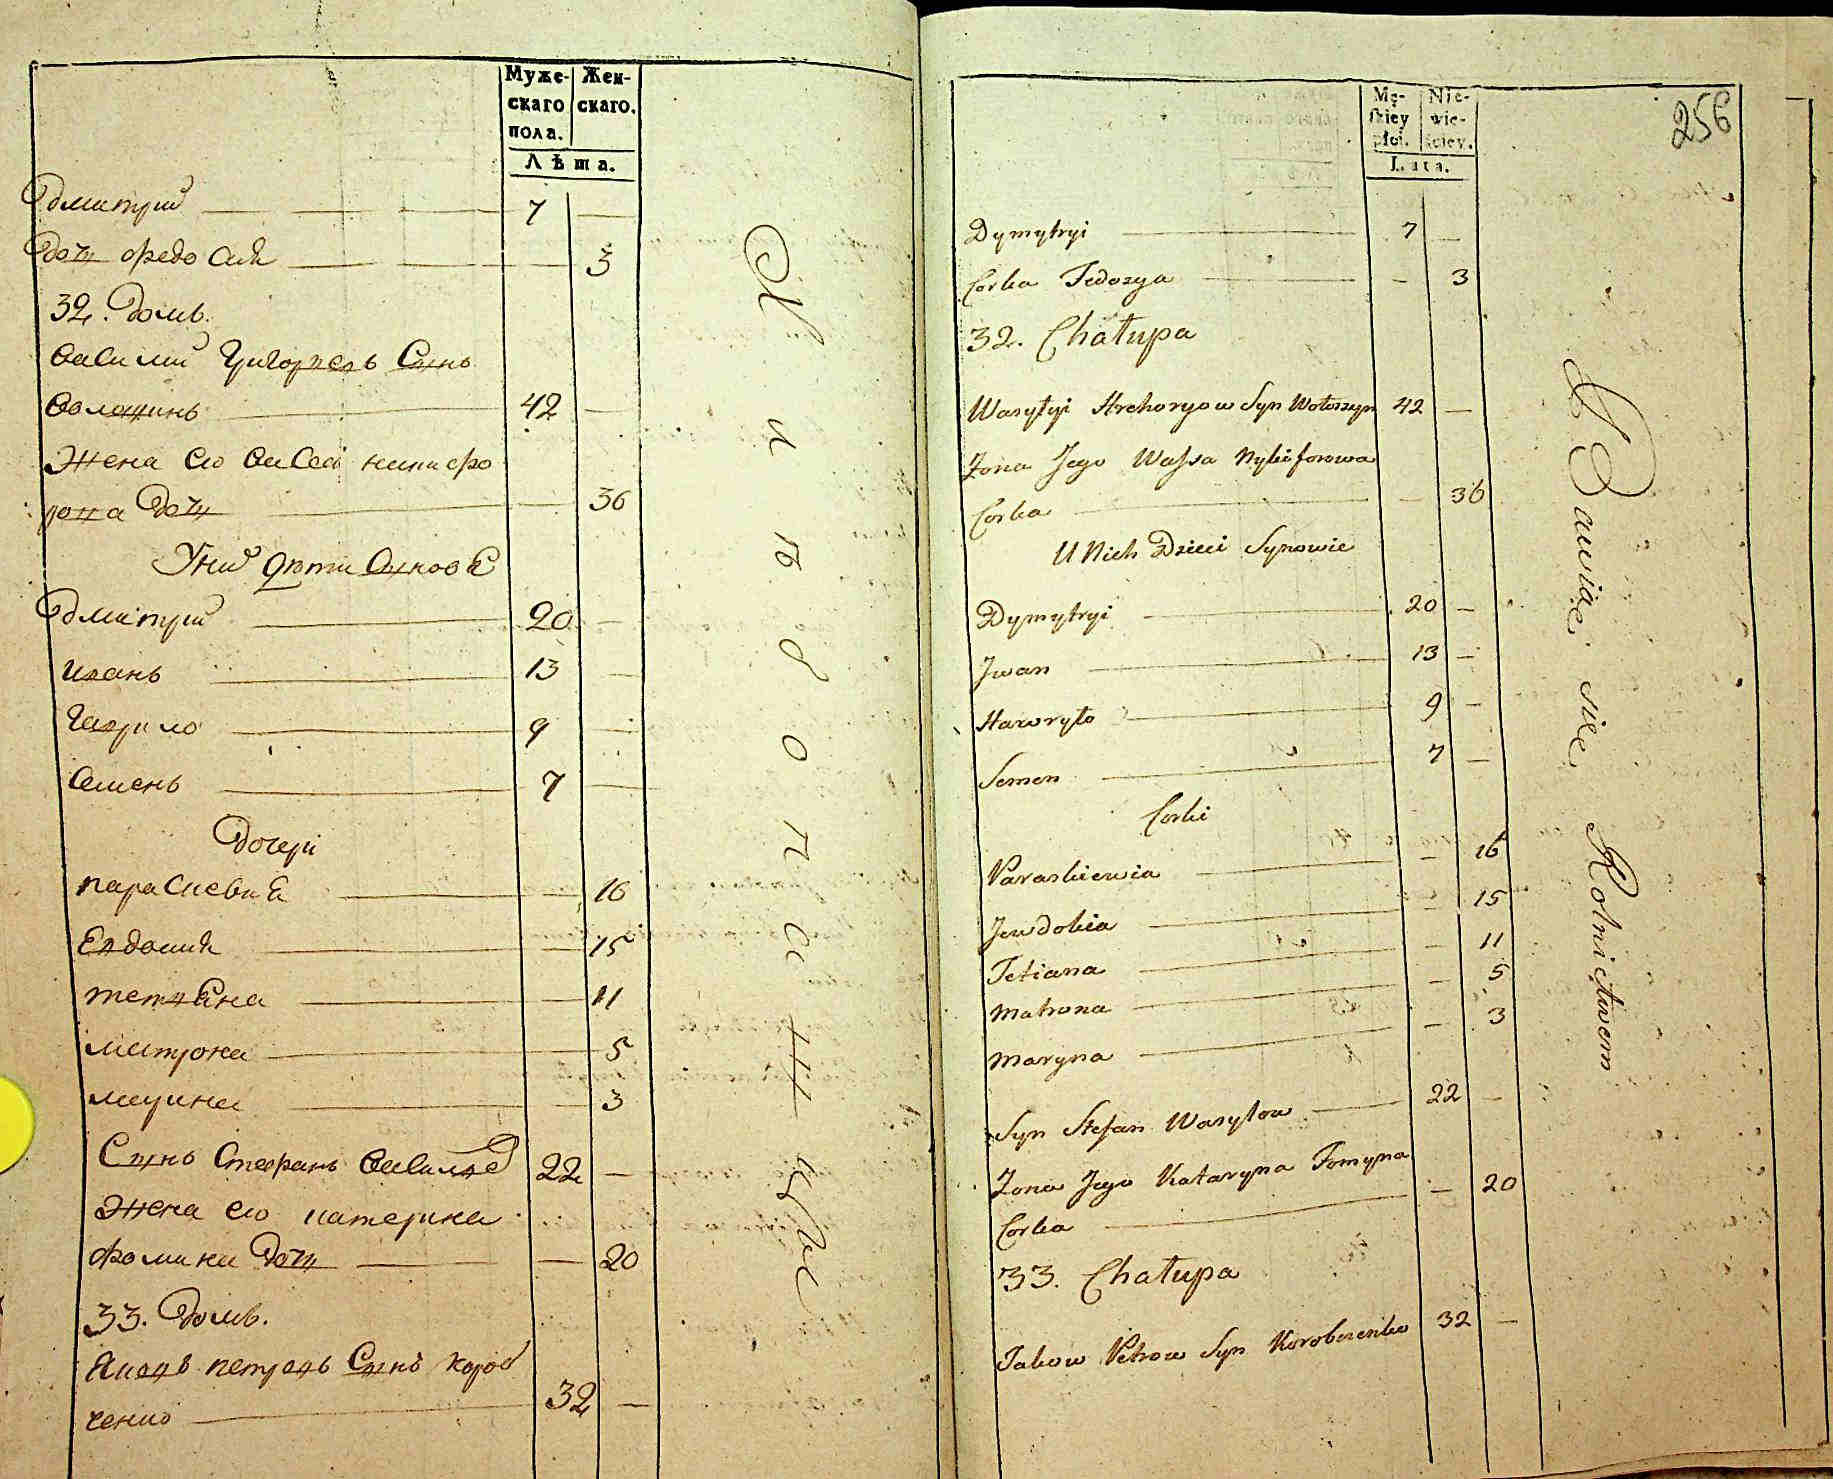 Муже-
скаго
пола.
Жен-
скаго.
Лѣта.
Дмитрий 7 —
Дочь Федосия — 3
32. Домъ.
Василий Григорьевъ Сынъ
Волошинъ 42 —
Жена его Васса Никифо
рова Дочь — 36
У них дѣти Сыновя
Дмитрий 20 —
Иванъ 13 —
Гаврило 9 —
Семенъ 7 —
Дочери
Парасковия — 16
Евдокия — 15
Тетяна — 11
Матрона — 5
Марина — 3
Сынъ Стефанъ Васильев 22 —
Жена его Катерина
Фомина Дочь — 20
33. Домъ.
Яковъ Петровъ Сынъ Короб
ченко 32 —
Хлѣбопашцы
Mę-
skiey
płci.
Nie-
wie-
sciey.
Lata.
256
Dymytryi 7 —
Corka Fedosya — 3
32. Chałupa
Wasylyi Hrehoryow Syn Wołoszyn 42 —
Żona Jego Wassa Nykiforowa
Corka — 36
U Nich Dzieci Synowie
Dymytryi 20 —
Jwan 13 —
Hawryło 9 —
Semen 7 —
Corki
Paraskiewia — 16
Jewdokia — 15
Tetiana — 11
Matrona — 5
Maryna — 3
Syn Stefan Wasylow 22 —
Żona Jego Kataryna Fomyna
Corka — 20
33. Chałupa
Jakow Petrow Syn Korobczenko 32 —
Bawiąci się Rolnictwem